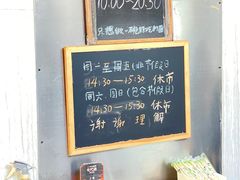 10:00-20:30
只想做一碗好吃的面
周一至周五(非节假日)
14:30—15:30 休市
周六、周日(包含节假日)
14:30—15:30 休市
谢谢理解